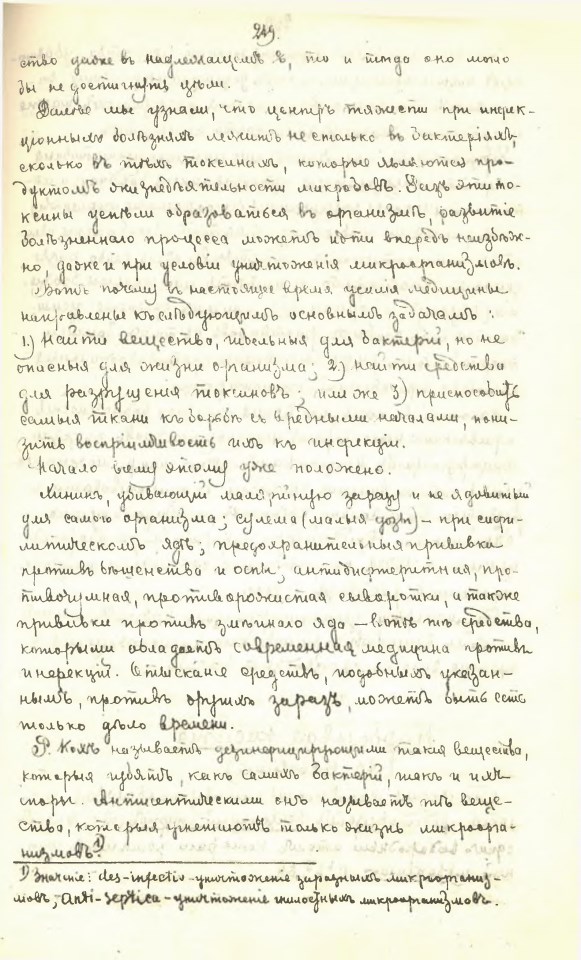 249.
ство даже въ надлежащемъ №, то и тогда оно мало
бы не достигнутъ цѣли.
Далѣе мы узнали, что центръ тяжести при инфек-
ціонныхъ болѣзняхъ лежитъ не столько въ бактеріяхъ,
сколько въ тѣхъ токсинахъ, которые являются про-
дуктомъ жизнедѣятельности микробовъ. Разъ эти то-
ксины успѣли образоваться въ организмѣ, развитіе
болѣзненнаго процесса можетъ идти впередъ неизбѣж-
но, даже и при условіи уничтоженія микроорганизмовъ.
Вотъ почему въ настоящее время усилія медицины
направлены къ слѣдующимъ основнымъ задачамъ:
1.) найти вещества, гибельныя для бактерій, но не
опасныя для жизни организма; 2) найти средства
для разрушенія токсиновъ; или же 3) приспособить
самыя ткани къ борьбѣ съ вредными началами, пони-
зить воспріимчивость ихъ къ инфекціи.
Начало всему этому уже положено.
Хининъ, убивающій малярійную заразу и не ядовитый
для самого организма; сулема (малыя дозы) – при сифи-
литическомъ ядѣ; предохранительныя прививки
противъ бѣшенства и оспы; антидифтеритная, про-
тивочумная, противорожистая сыворотки, а также
прививки противъ змѣинаго яда – вотъ тѣ средства,
которыми обладаетъ современная медицина противъ
инфекцій. Отысканіе средствъ, подобныхъ указан-
нымъ, противъ другихъ заразъ, можетъ быть есть
только дѣло времени.
Р. Кохъ называетъ дезинфицирующими такія вещества,
которыя губятъ, какъ самихъ бактерій, такъ и ихъ
споры. Антисептическими онъ называетъ тѣ веще-
ства, которыя угнетаютъ только жизнь микроорга-
низмовъ.¹)
¹) Значеніе: des-infectio – уничтоженіе заразныхъ микроорганиз-
мовъ; anti-septica – уничтоженіе гнилостныхъ микроорганизмовъ.